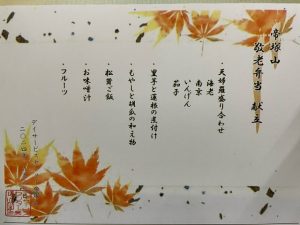 帝塚山
敬老弁当 献立
・天婦羅盛り合わせ
海老
南京
いんげん
茄子
・里芋と蓮根の煮付け
・もやしと胡瓜の和え物
・松茸ご飯
・お味噌汁
・フルーツ
デイサービス
二〇二四年